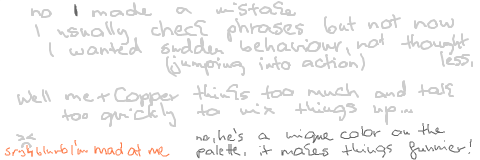 no I made a mistake
I usually check phrases but not now
I wanted sudden behaviour, not thoughtless,
(jumping into action)
Well me + Copper things too much and talk
too quickly to mix things up...
>.<
I'm mad at me
no, he's a unique color on the
palette, it makes things funnier!